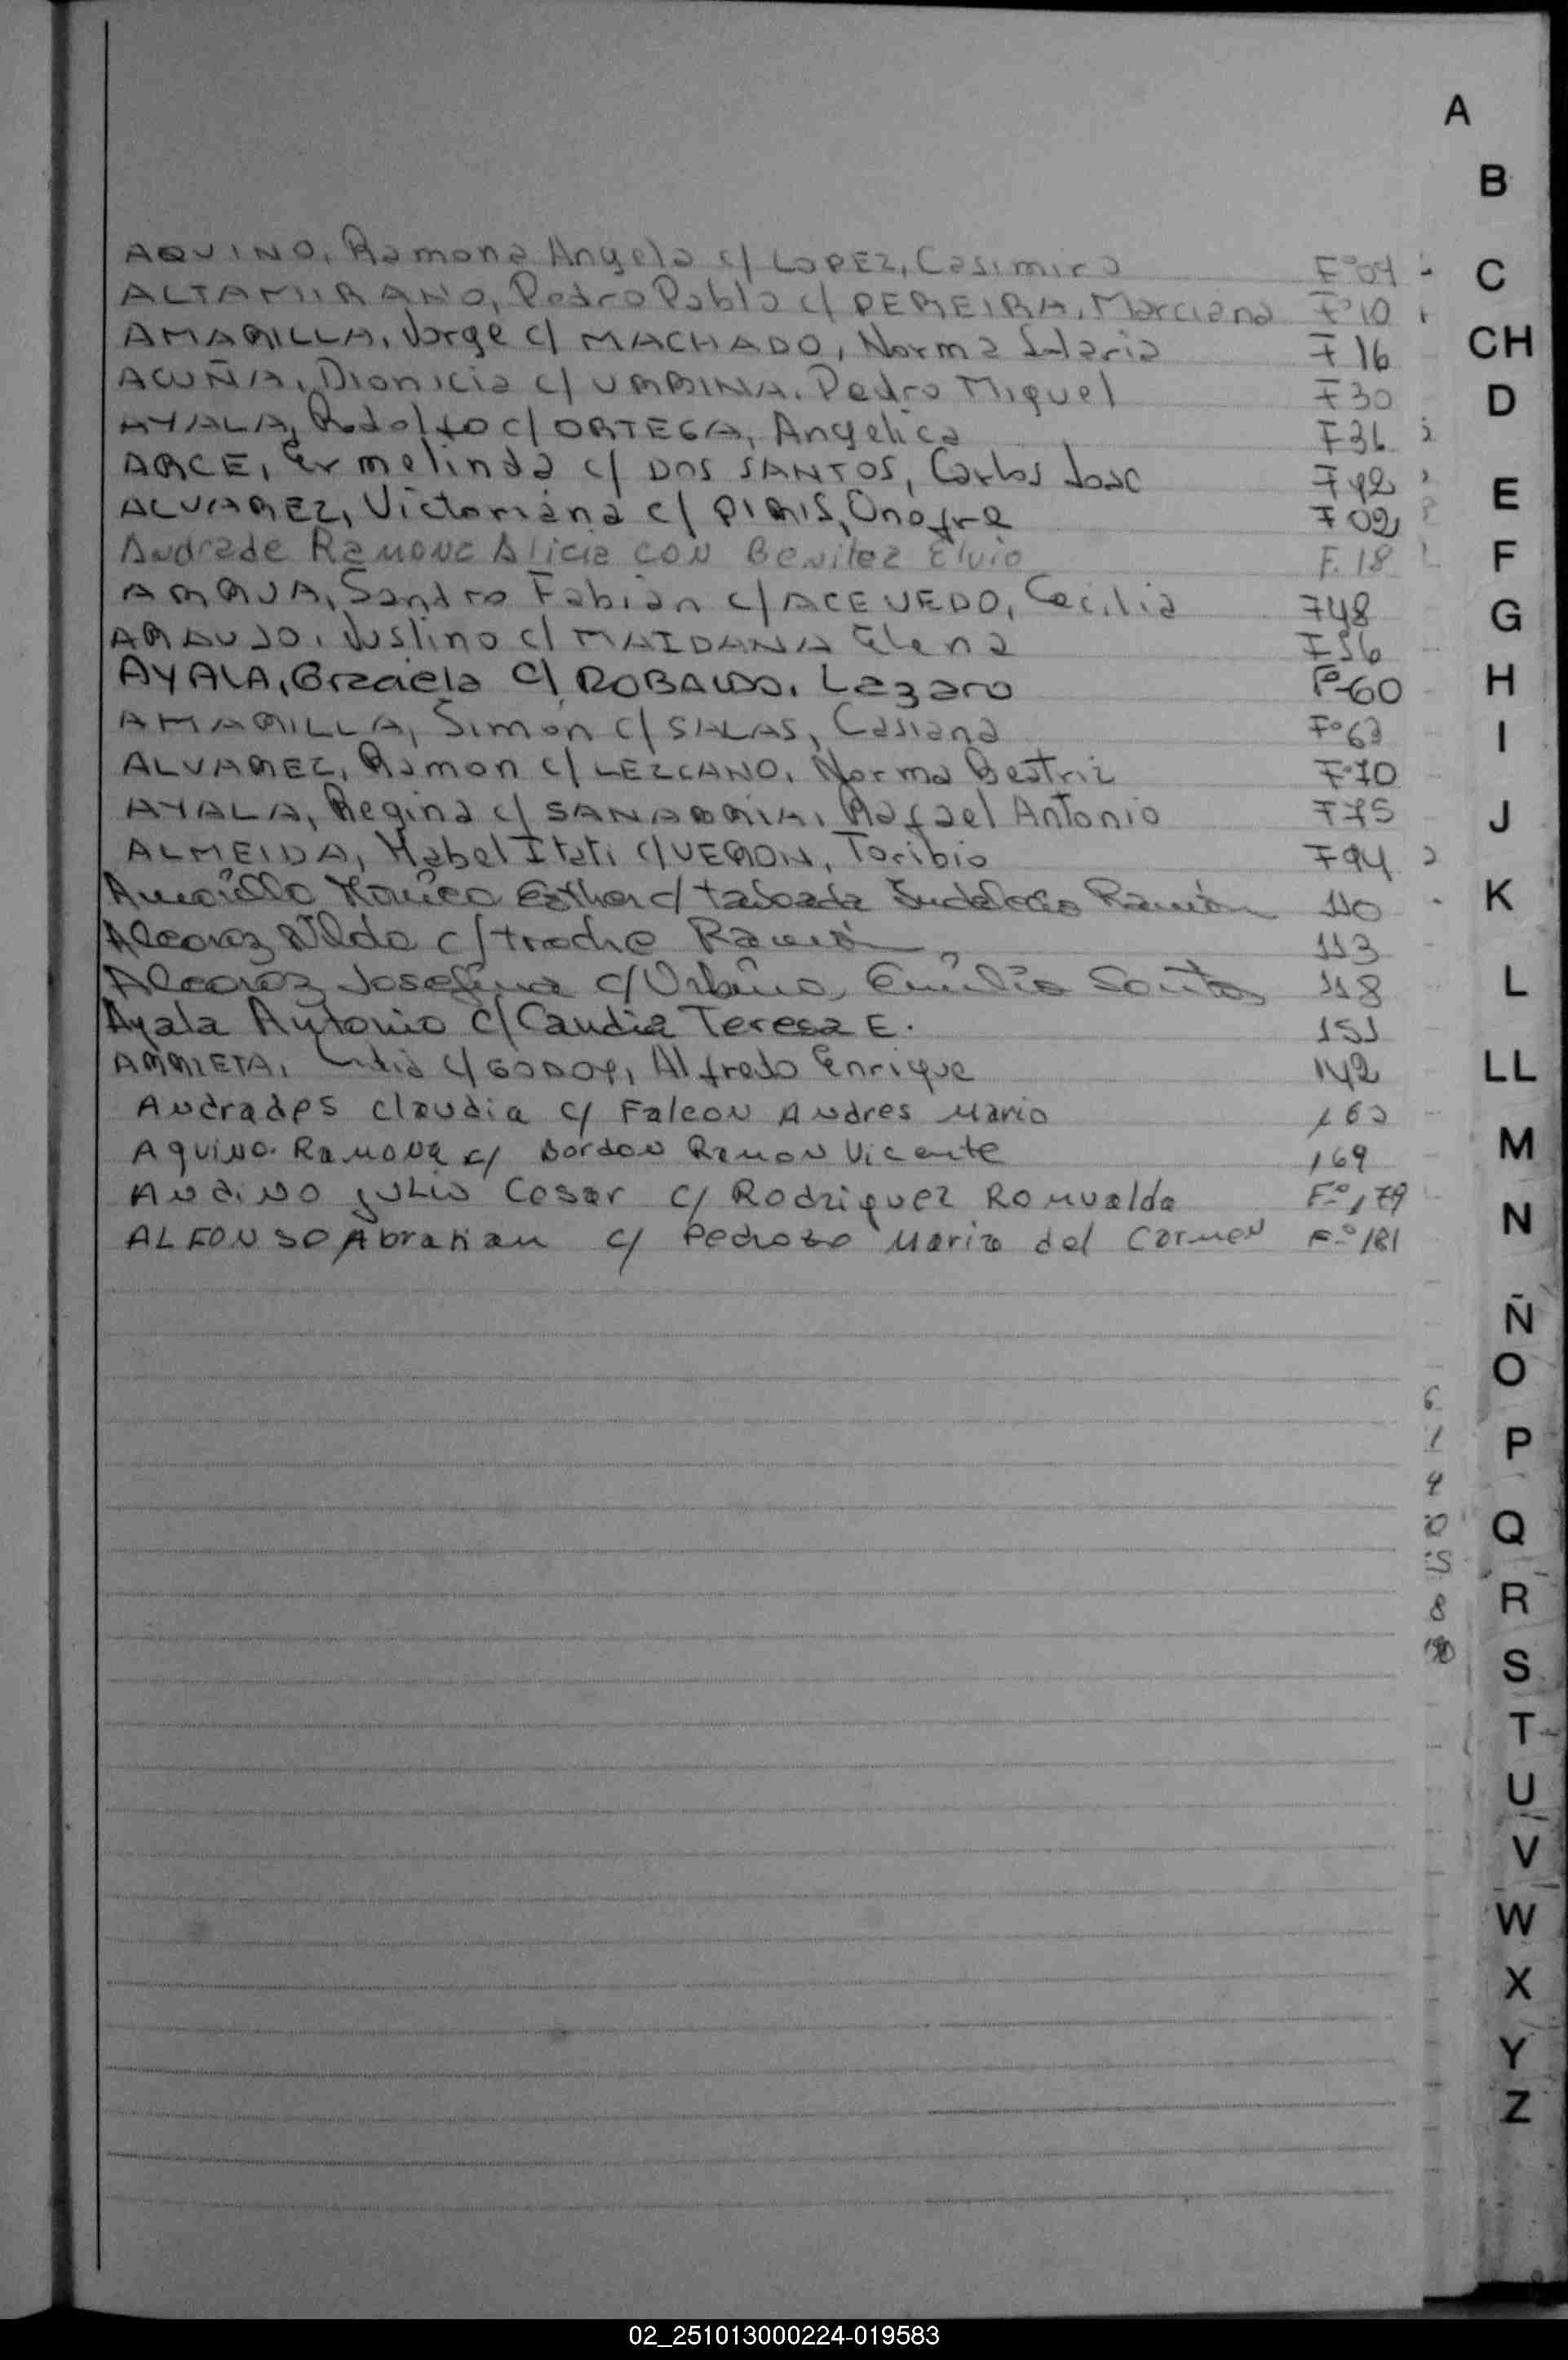 A
B
C
CH
D
E
F
G
H
I
J
K
L
LL
M
N
Ñ
O
P
Q
R
S
T
U
V
W
X
Y
Z
AQUINO, Ramona Angela c/ LOPEZ, Casimiro F°04
ALTAMIRANO, Pedro Pablo c/ PEREIRA, Marciana F°10
AMARILLA, Jorge c/ MACHADO, Norma F 16
ACUÑA, Dionicia c/ URBINA, Pedro Miguel F30
AYALA, Rodolfo c/ ORTEGA, Angelica F36
ARCE, Ermelinda c/ DOS SANTOS, Carlos Jose F42
ALVAREZ, Victoriana c/ PIRIS, Onofre F 02
Andrade Ramona Alicia CON Benitez Elvio F. 18
ARRUA, Sandro Fabian c/ ACEVEDO, Cecilia F48
ARAUJO, Justino c/ MAIDANA Elena F56
AYALA, Graciela c/ ROBALDO, Lazaro F°60
AMARILLA, Simón c/ SALAS, Casiana F°63
ALVAREZ, Ramon c/ LEZCANO, Norma Beatriz F°70
AYALA, Regina c/ SANABRIA, Rafael Antonio F75
ALMEIDA, Mabel Itati c/ VERON, Toribio F94
Amarilla Mónica Esther c/ Taboada Indalecio Ramón 110
Alcaraz Nilda c/ Troche Ramón 113
Alcaraz Josefina c/ Urbina, Emilio Santos 118
Ayala Antonio c/ Candia Teresa E. 151
ARRIETA, Lidia c/ GODOY, Alfredo Enrique 142
Andrades Claudia c/ Falcon Andres Mario 163
Aquino Ramona c/ Bordon Ramon Vicente 169
Andino Julio Cesar c/ Rodriguez Romualda F°179
ALFONSO Abrahan c/ Pedrozo Maria del Carmen F°181
6
1
4
0
S
8
02_251013000224-019583